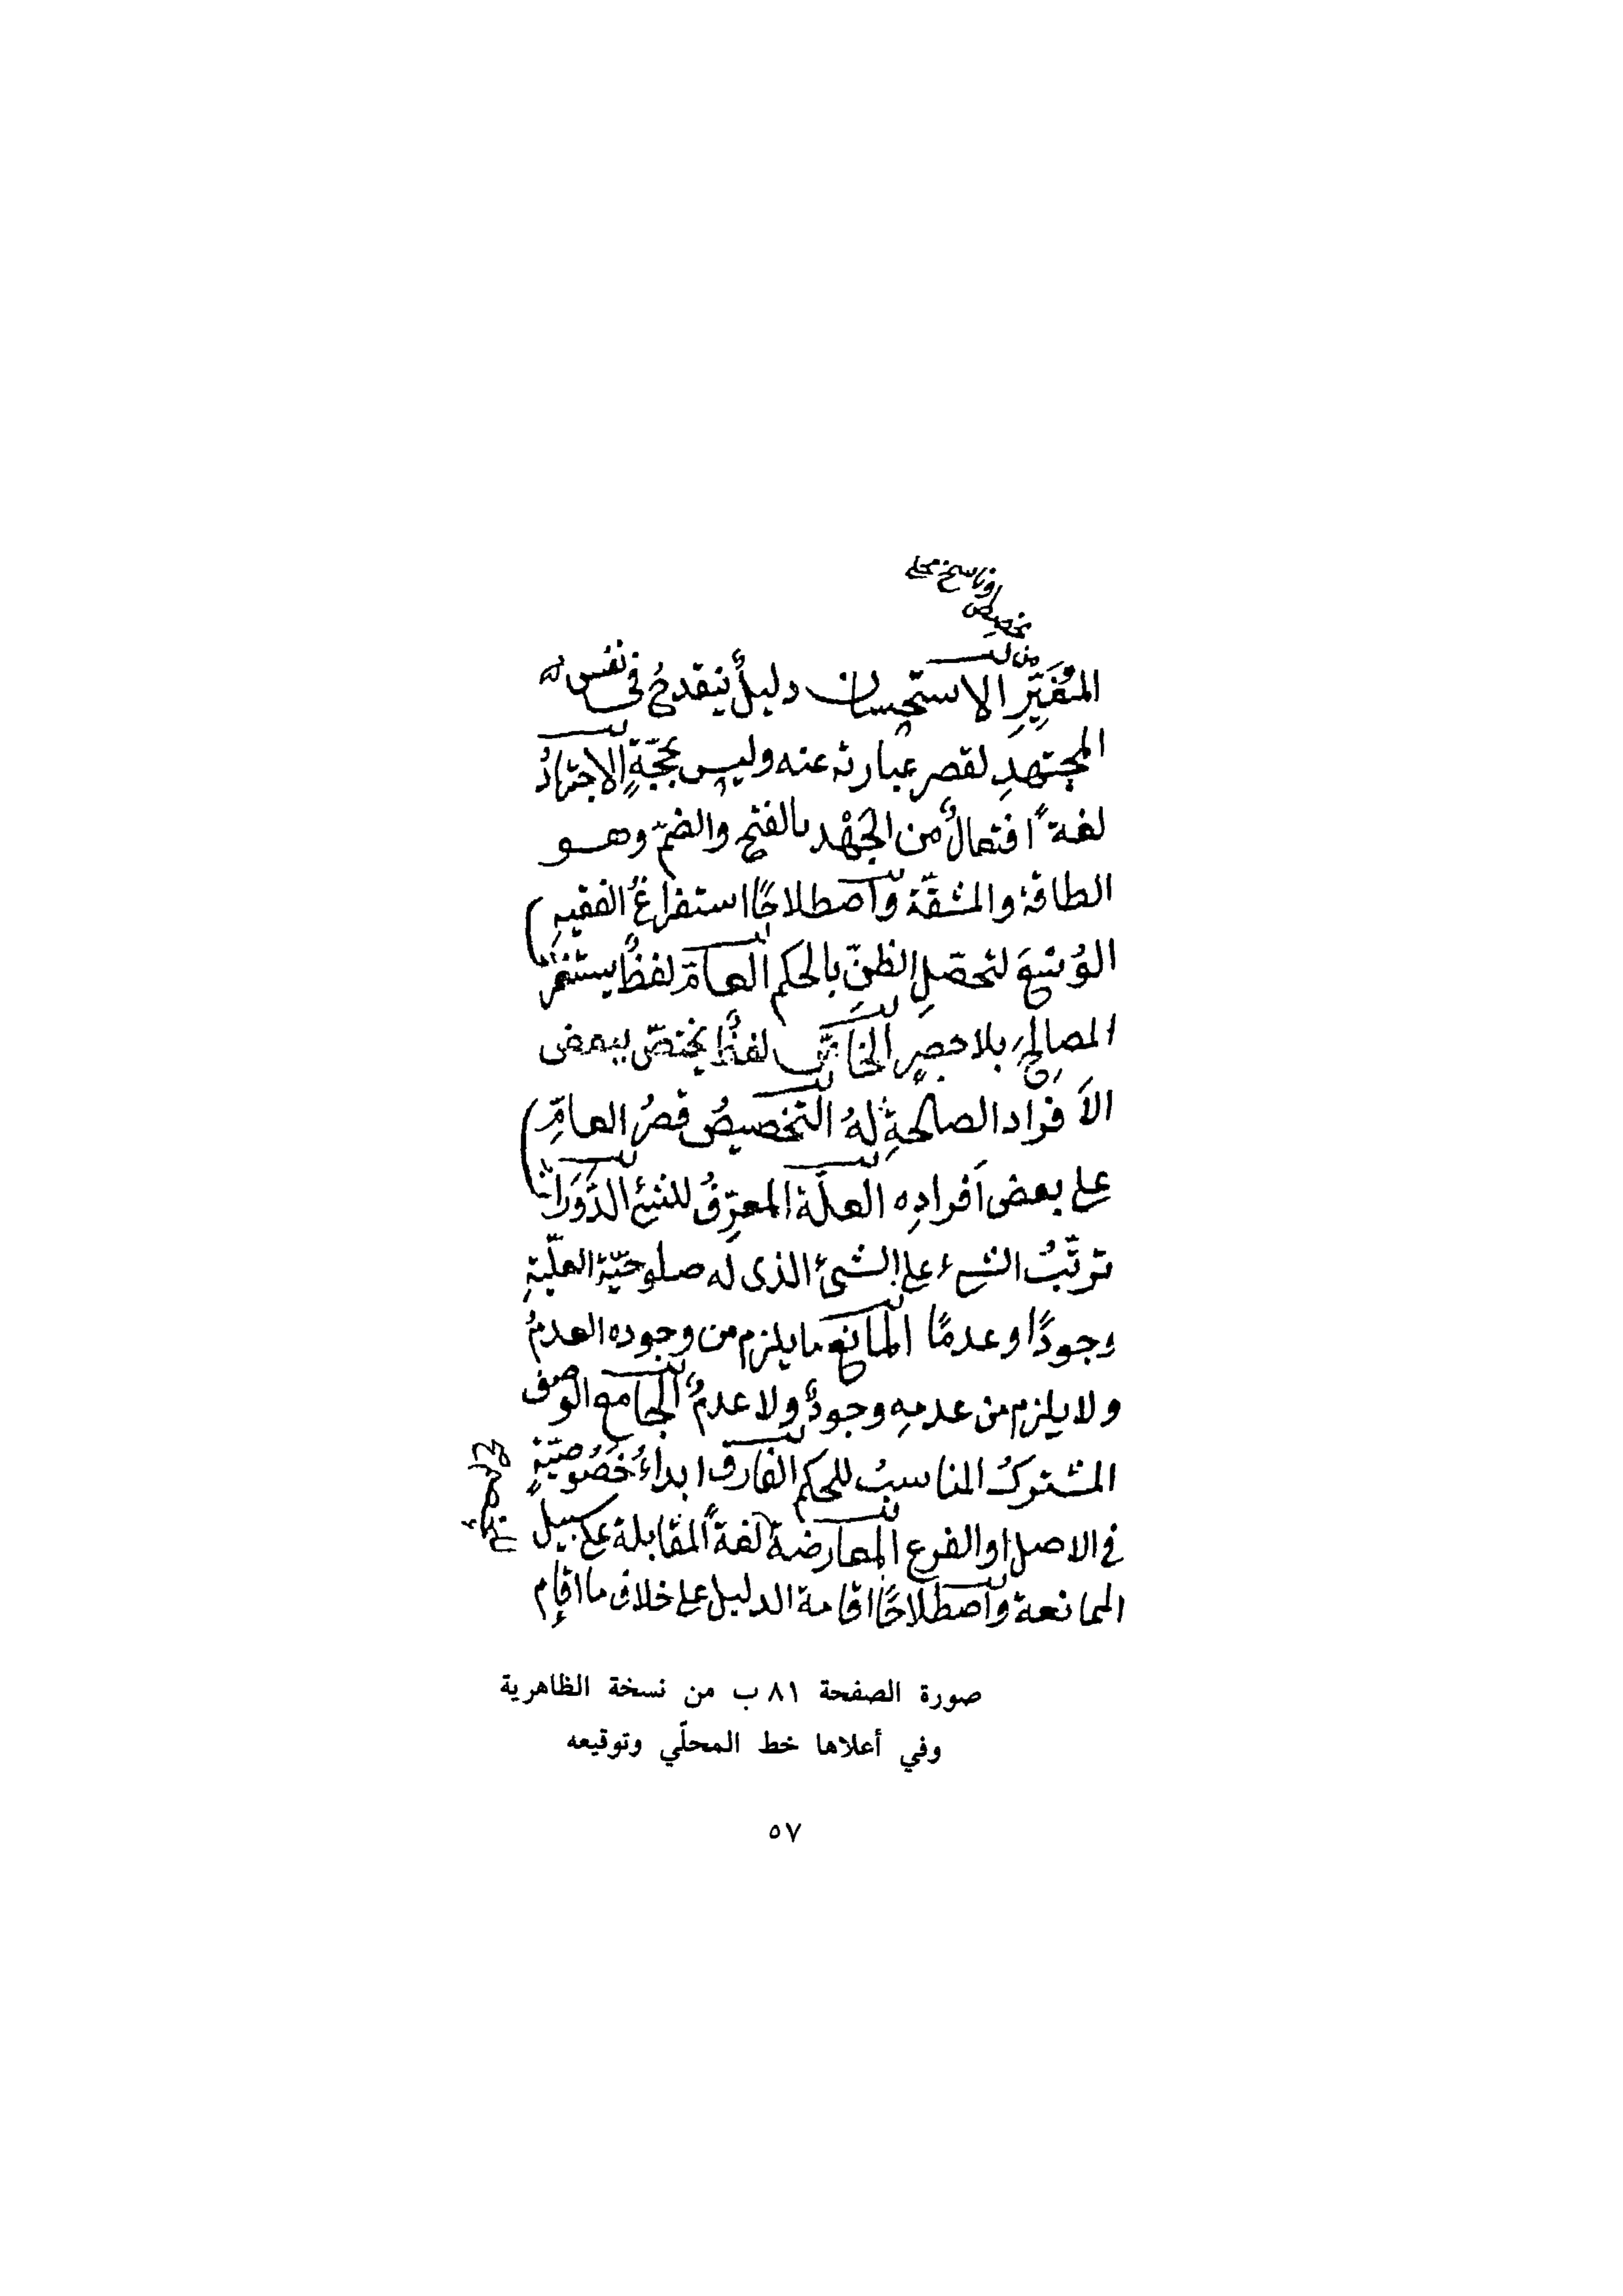 او ناسخ محلي
تخصيص
من
المُغَيِّرِ الاستحسان دليلٌ ينقدحُ فى نفس
المجتهدِ لقصر عبارته عنه وليس بحجّةٍ الاجتهادُ
لغةً افتعالٌ من الجَهْد بالفتح والضمّ وهو
الطاقة والمشقّة وَاصطلاحًا استفراغُ الفقيهِ
الوُسْعَ لتحصيلِ الظنّ بالحكم العامّ لفظٌ يستغرق
الصالحَ بلا حصرٍ الخاصّ لفظٌ يختصّ ببعض
الاَفراد الصالحةِ لهُ التخصيصُ قصرُ العامِّ
على بعض اَفرادِه العلّة المعرِّفُ للشئِ الدَّوَرانُ
ترتّبُ الشىء على الشئ الذى له صلوحيّة العلّيّةِ
وجودًا وعدمًا المانع ما يلزم من وجوده العدمُ
ولا يلزم من عدمِه وجودٌ ولا عدمٌ الجامع الوصف
المشتركُ المناسبُ للحكم الفارق ابداءُ خصُوصيّةٍ
فى الاصل او الفرع المعارضة لغةً المقابلة على سبيل
الممانعة وَاصطلاحًا اقامة الدليل على خلاف ما اقام
صورة الصفحة ٨١ ب من نسخة الظاهرية
وفي أعلاها خط المحلّي وتوقيعه
٥٧